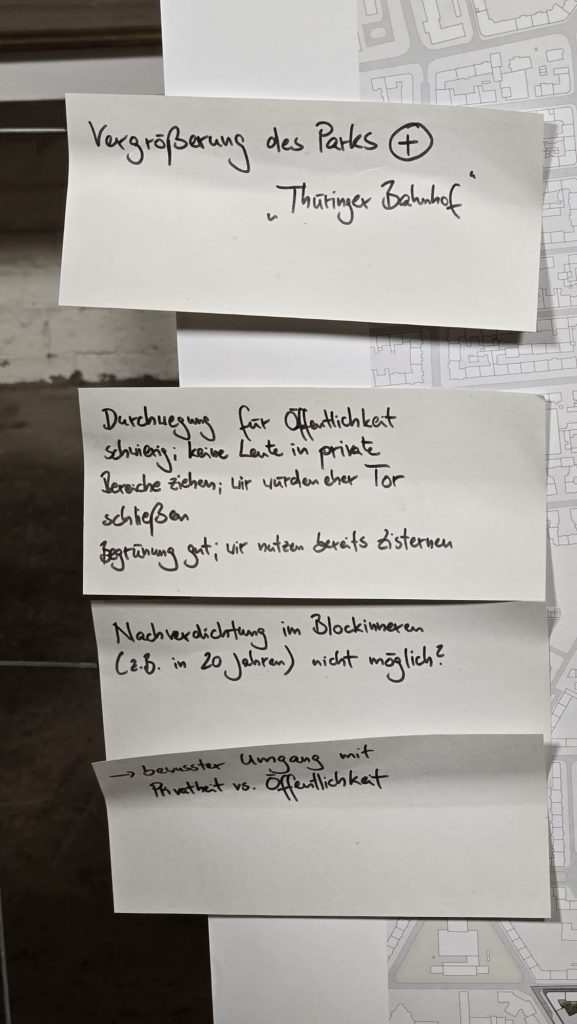 Vergrößerung des Parks ⊕
„Thüringer Bahnhof“
Durchwegung für Öffentlichkeit
schwierig; keine Leute in private
Bereiche ziehen; wir würden eher Tor
schließen
Begrünung gut; wir nutzen bereits Zisternen
Nachverdichtung im Blockinneren
(z.B. in 20 Jahren) nicht möglich?
→ bewusster Umgang mit
Privatheit vs. Öffentlichkeit